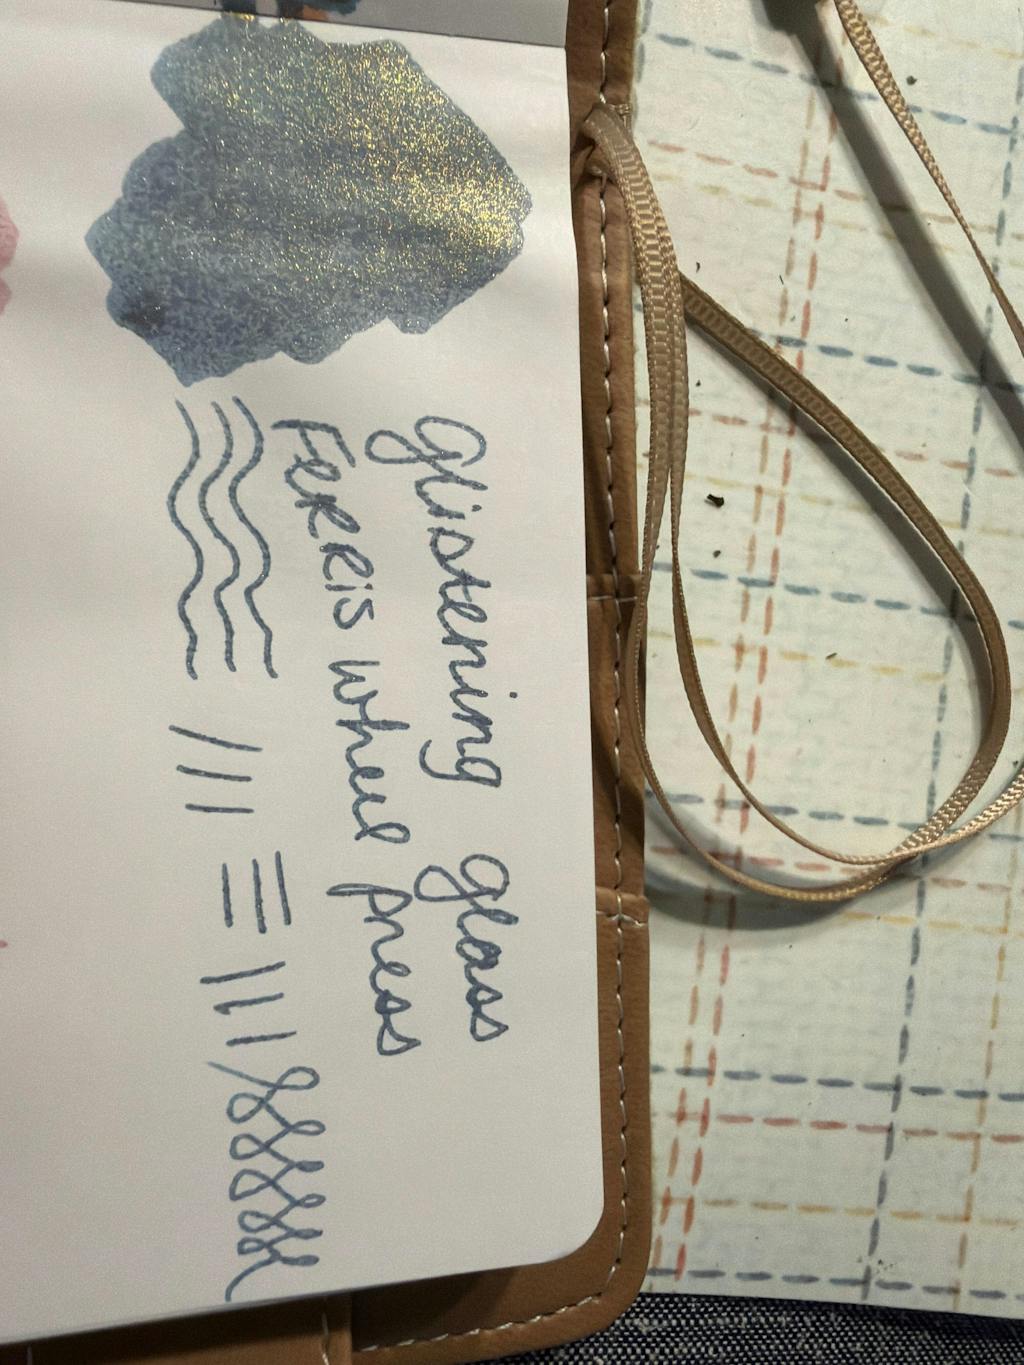 Glistening glass
Ferris wheel press